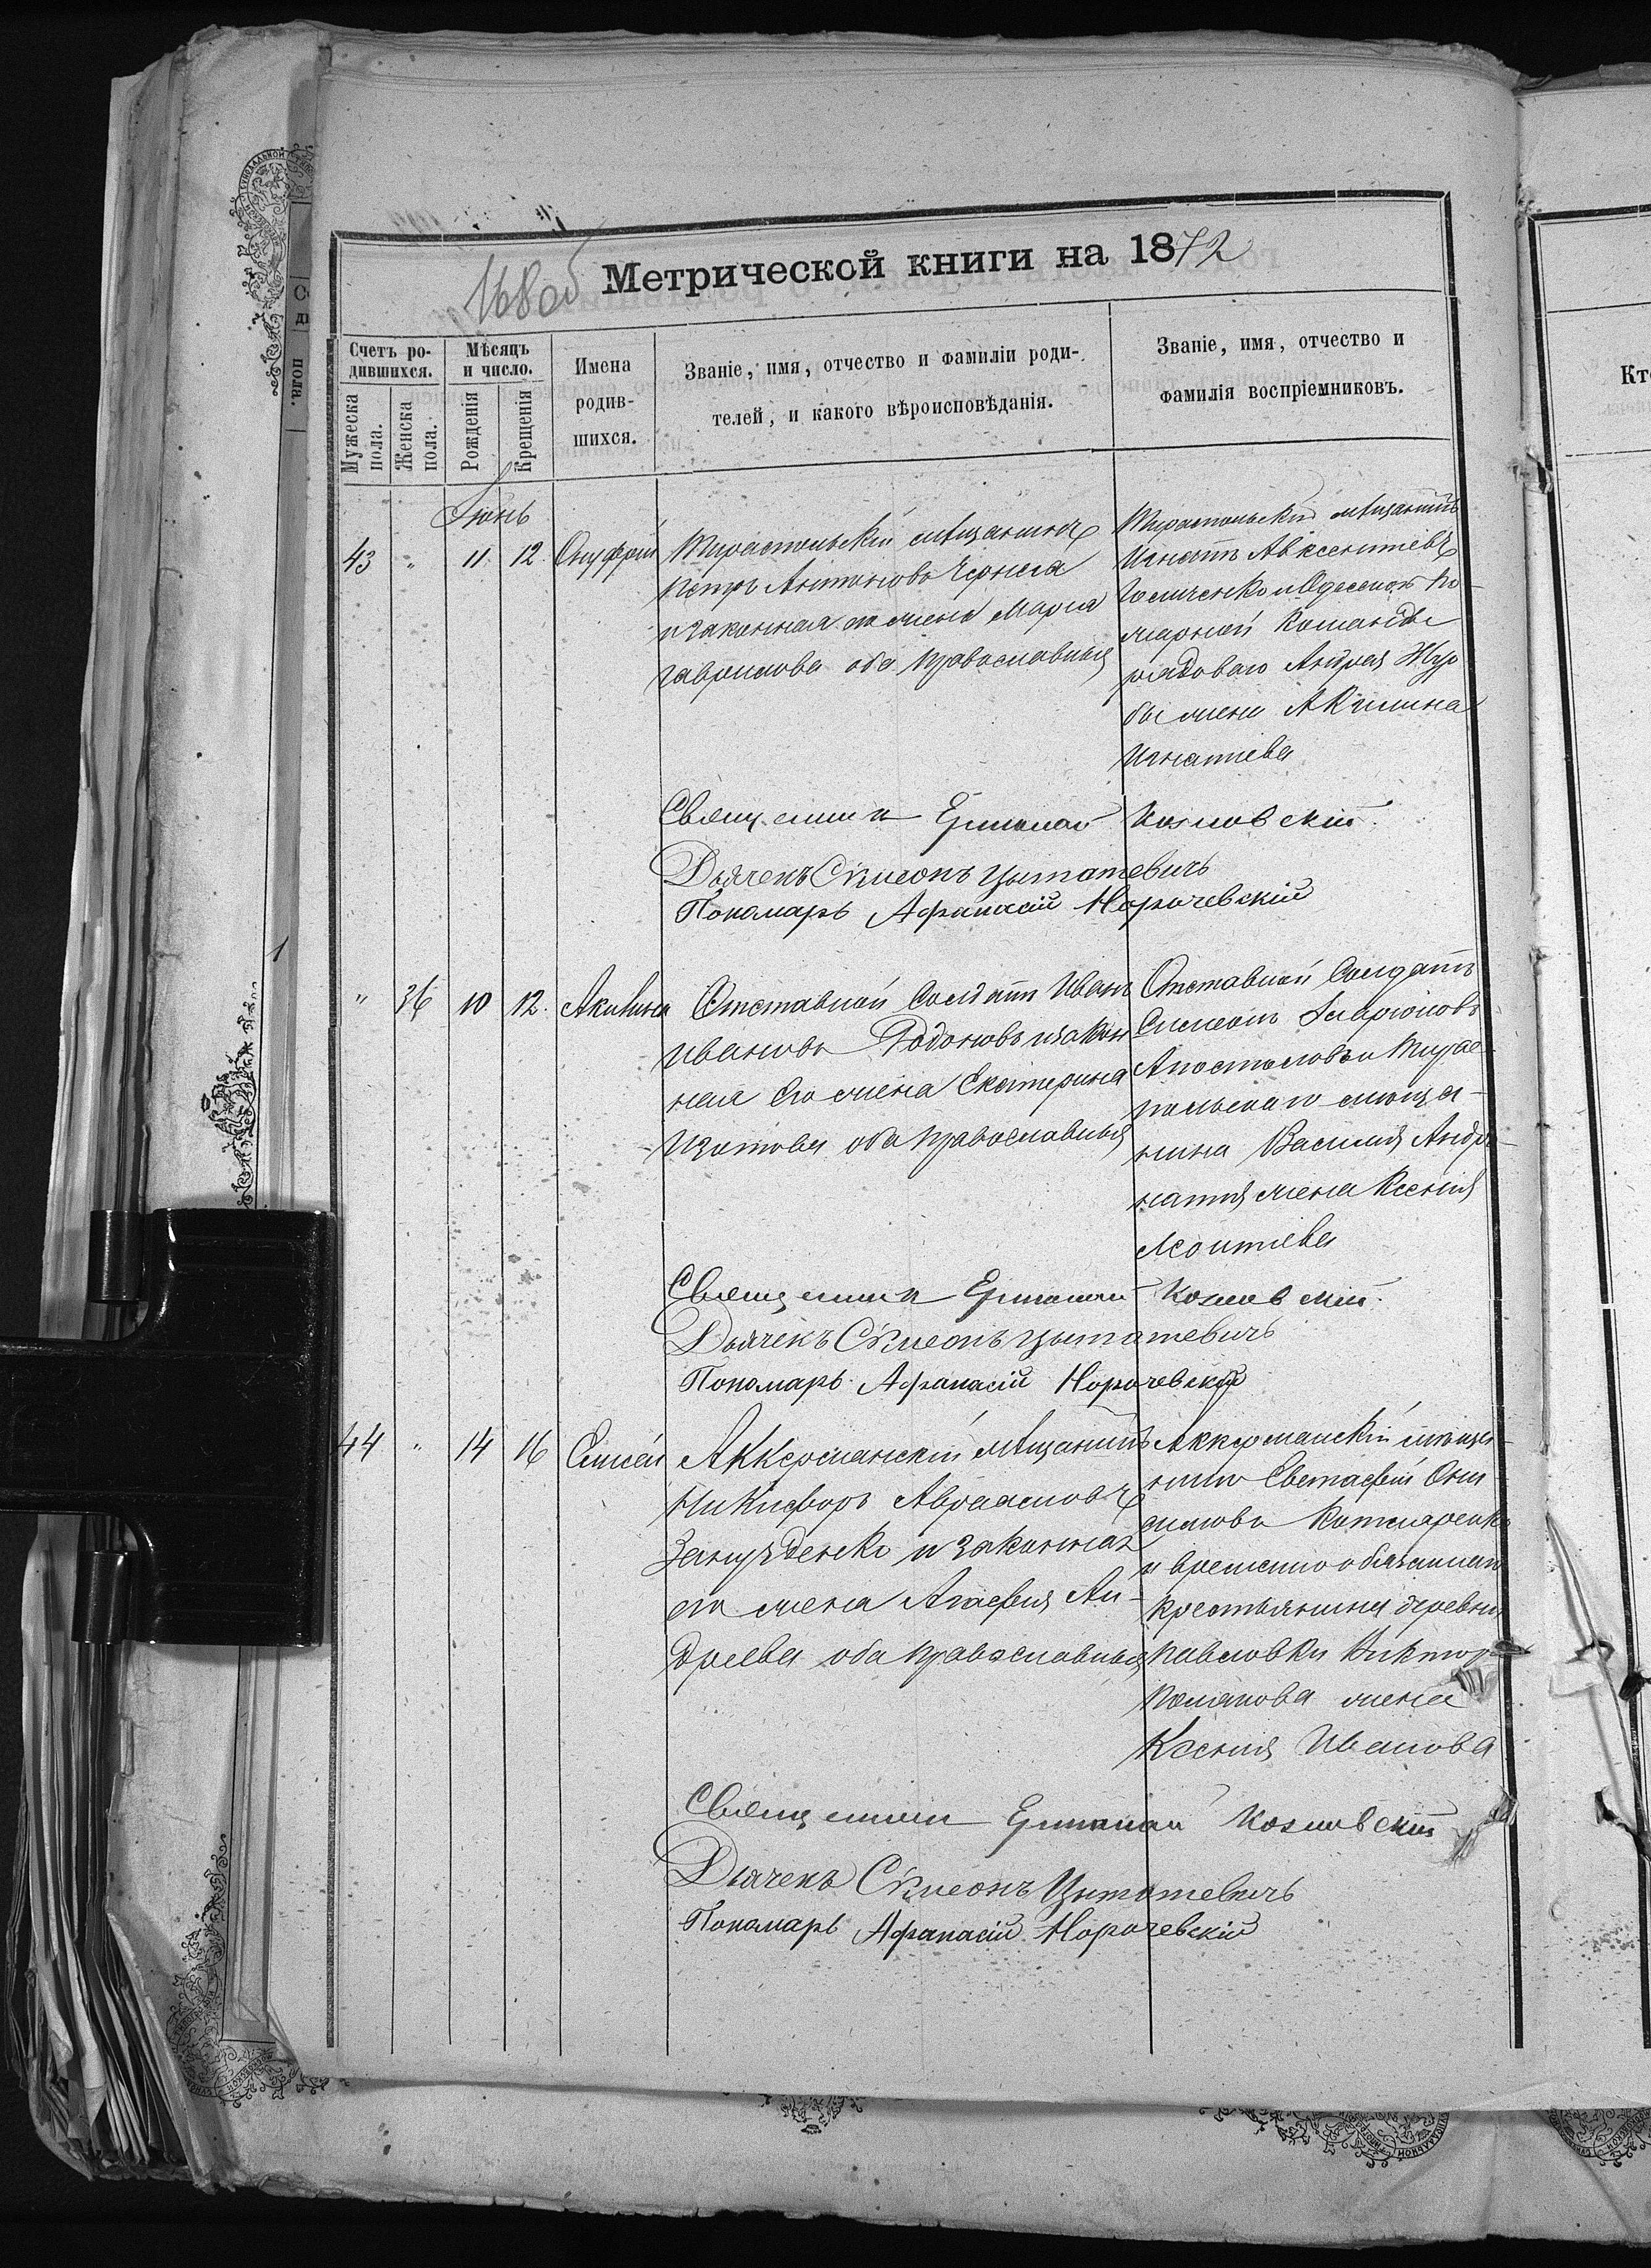 168об
Метрической книги на 1872
Счетъ ро-
дившихся.
Мужеска
пола.
Женска
пола.
Мѣсяцъ
и число.
Рожденія
Крещенія
Имена
родив-
шихся.
Званіе, имя, отчество и фамиліи роди-
телей, и какого вѣроисповѣданія.
Званіе, имя, отчество и
фамилія воспріемниковъ.
Іюнь
43 " 11 12 Онуфрій
Тираспольскій мѣщанинъ
Петръ Антоновъ Чернега
и законная его жена Марія
Гаврилова оба православныя
Тираспольскій мѣщанинъ
Игнатъ Авксентіевъ
и Одесской по-
жарной команды
рядоваго Андрея
жена Акилина
Игнатіева
Священникъ Козловскій
Дьячекъ Сѵмеонъ Цытатевичъ
Пономарь Афанасій
" 36 10 12 Акилина
Отставной Солдатъ Иванъ
Ивановъ Родоновъ и закон
ная его жена Екатерина
Изотова оба православныя
Отставной Солдатъ
Симеонъ Иларіоновъ
Апостоловъ и Тирас-
польскаго мѣща-
нина Василія
жена Ксенія
Леонтіева
Священникъ Козловскій
Дьячекъ Сѵмеонъ Цытатевичъ
Пономарь Афанасій
44 " 14 16 Елисей
Аккерманскій мѣщанинъ
Никифоръ Авраамовъ
и законная
его жена Агафія Ан-
дреева оба православныя
Аккерманскій мѣща-
нинъ Евстафій Они-
симовъ Котляренко
и временно обязаннаго
крестьянина деревни
Павловки Виктора
жена
Ксенія Иванова
Священникъ Козловскій
Дьячекъ Сѵмеонъ Цытатевичъ
Пономарь Афанасій